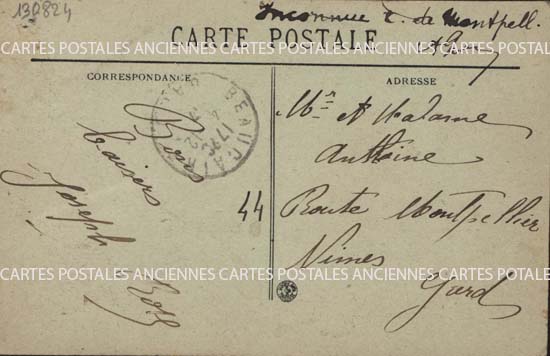 130824
Inconnue R. de Montpell.
CARTE POSTALE
CORRESPONDANCE
ADRESSE
BEAUCAIRE
17
Bons
baisers
Joseph
44
Mr et Madame
Anthoine
Route Montpellier
Nimes
Gard
CARTES POSTALES ANCIENNES CARTES POSTALES ANCIENNES CARTES POSTALES ANCIENNES
CARTES POSTALES ANCIENNES CARTES POSTALES ANCIENNES CARTES POSTALES ANCIENNES